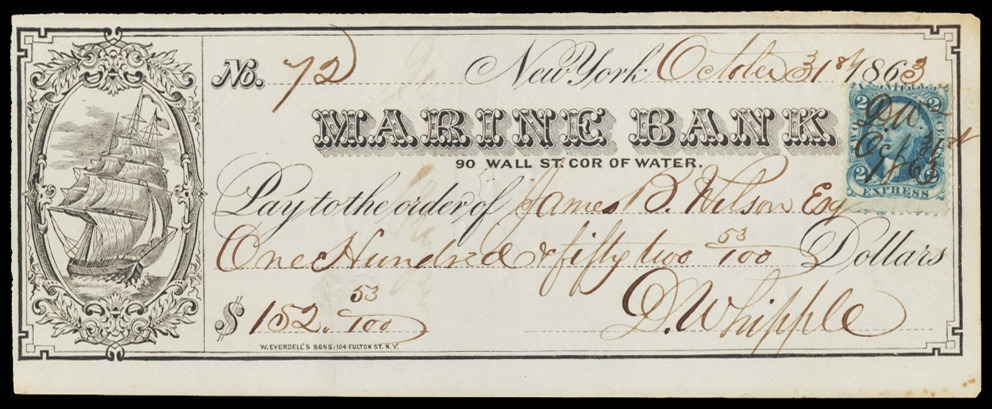 No. 72 New York October 31st 1863
MARINE BANK
90 WALL ST. COR OF WATER.
Pay to the order of James B. Wilson Esq
One Hundred & fifty two 53/100 Dollars
$ 152. 53/100 D. Whipple
W. EVERDELL'S SONS, 104 FULTON ST. N.Y.
2 2
D.W.
Oct 31st
1863
2 2
EXPRESS